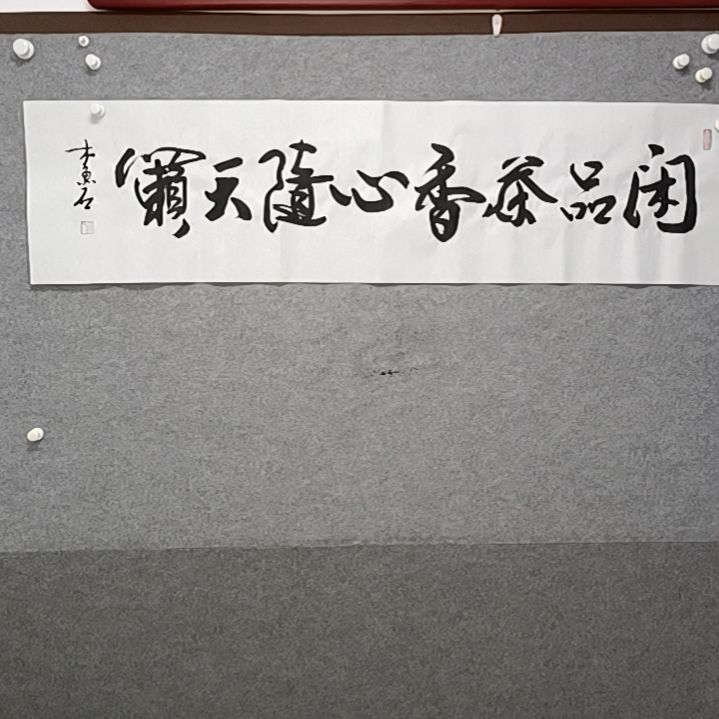 闲品茶香心随天籁
木鱼石